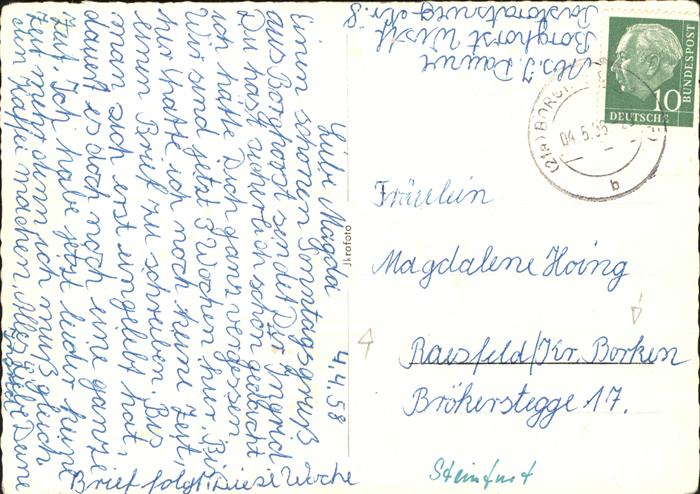 Liebe Magda 4.4.58
Einen schönen Sonntagsgruß
aus Borghorst sendet Dir Ingrid
Du hast sicherlich schon gedacht
ich hätte Dich ganz vergessen
Wir sind jetzt 3 Wochen hier. Bis
hier hatte ich noch keine Zeit,
einen Brief zu schreiben. Bis
man sich erst eingelebt hat,
dauert es doch noch eine ganze
Zeit. Ich habe jetzt leider keine
Zeit mehr denn ich muß gleich
ein Kaffee machen. Alles Liebe Deine
Brief folgt! Diese Woche
Jkrafoto
Abs. J
Borghorst Westf
Nr. 8
DEUTSCHE
BUNDESPOST
10
(21a) BORGH
04.5.
b
Fräulein
Magdalene Hoing
Raesfeld/Kr. Borken
Brökerstegge 17.
Steinfurt